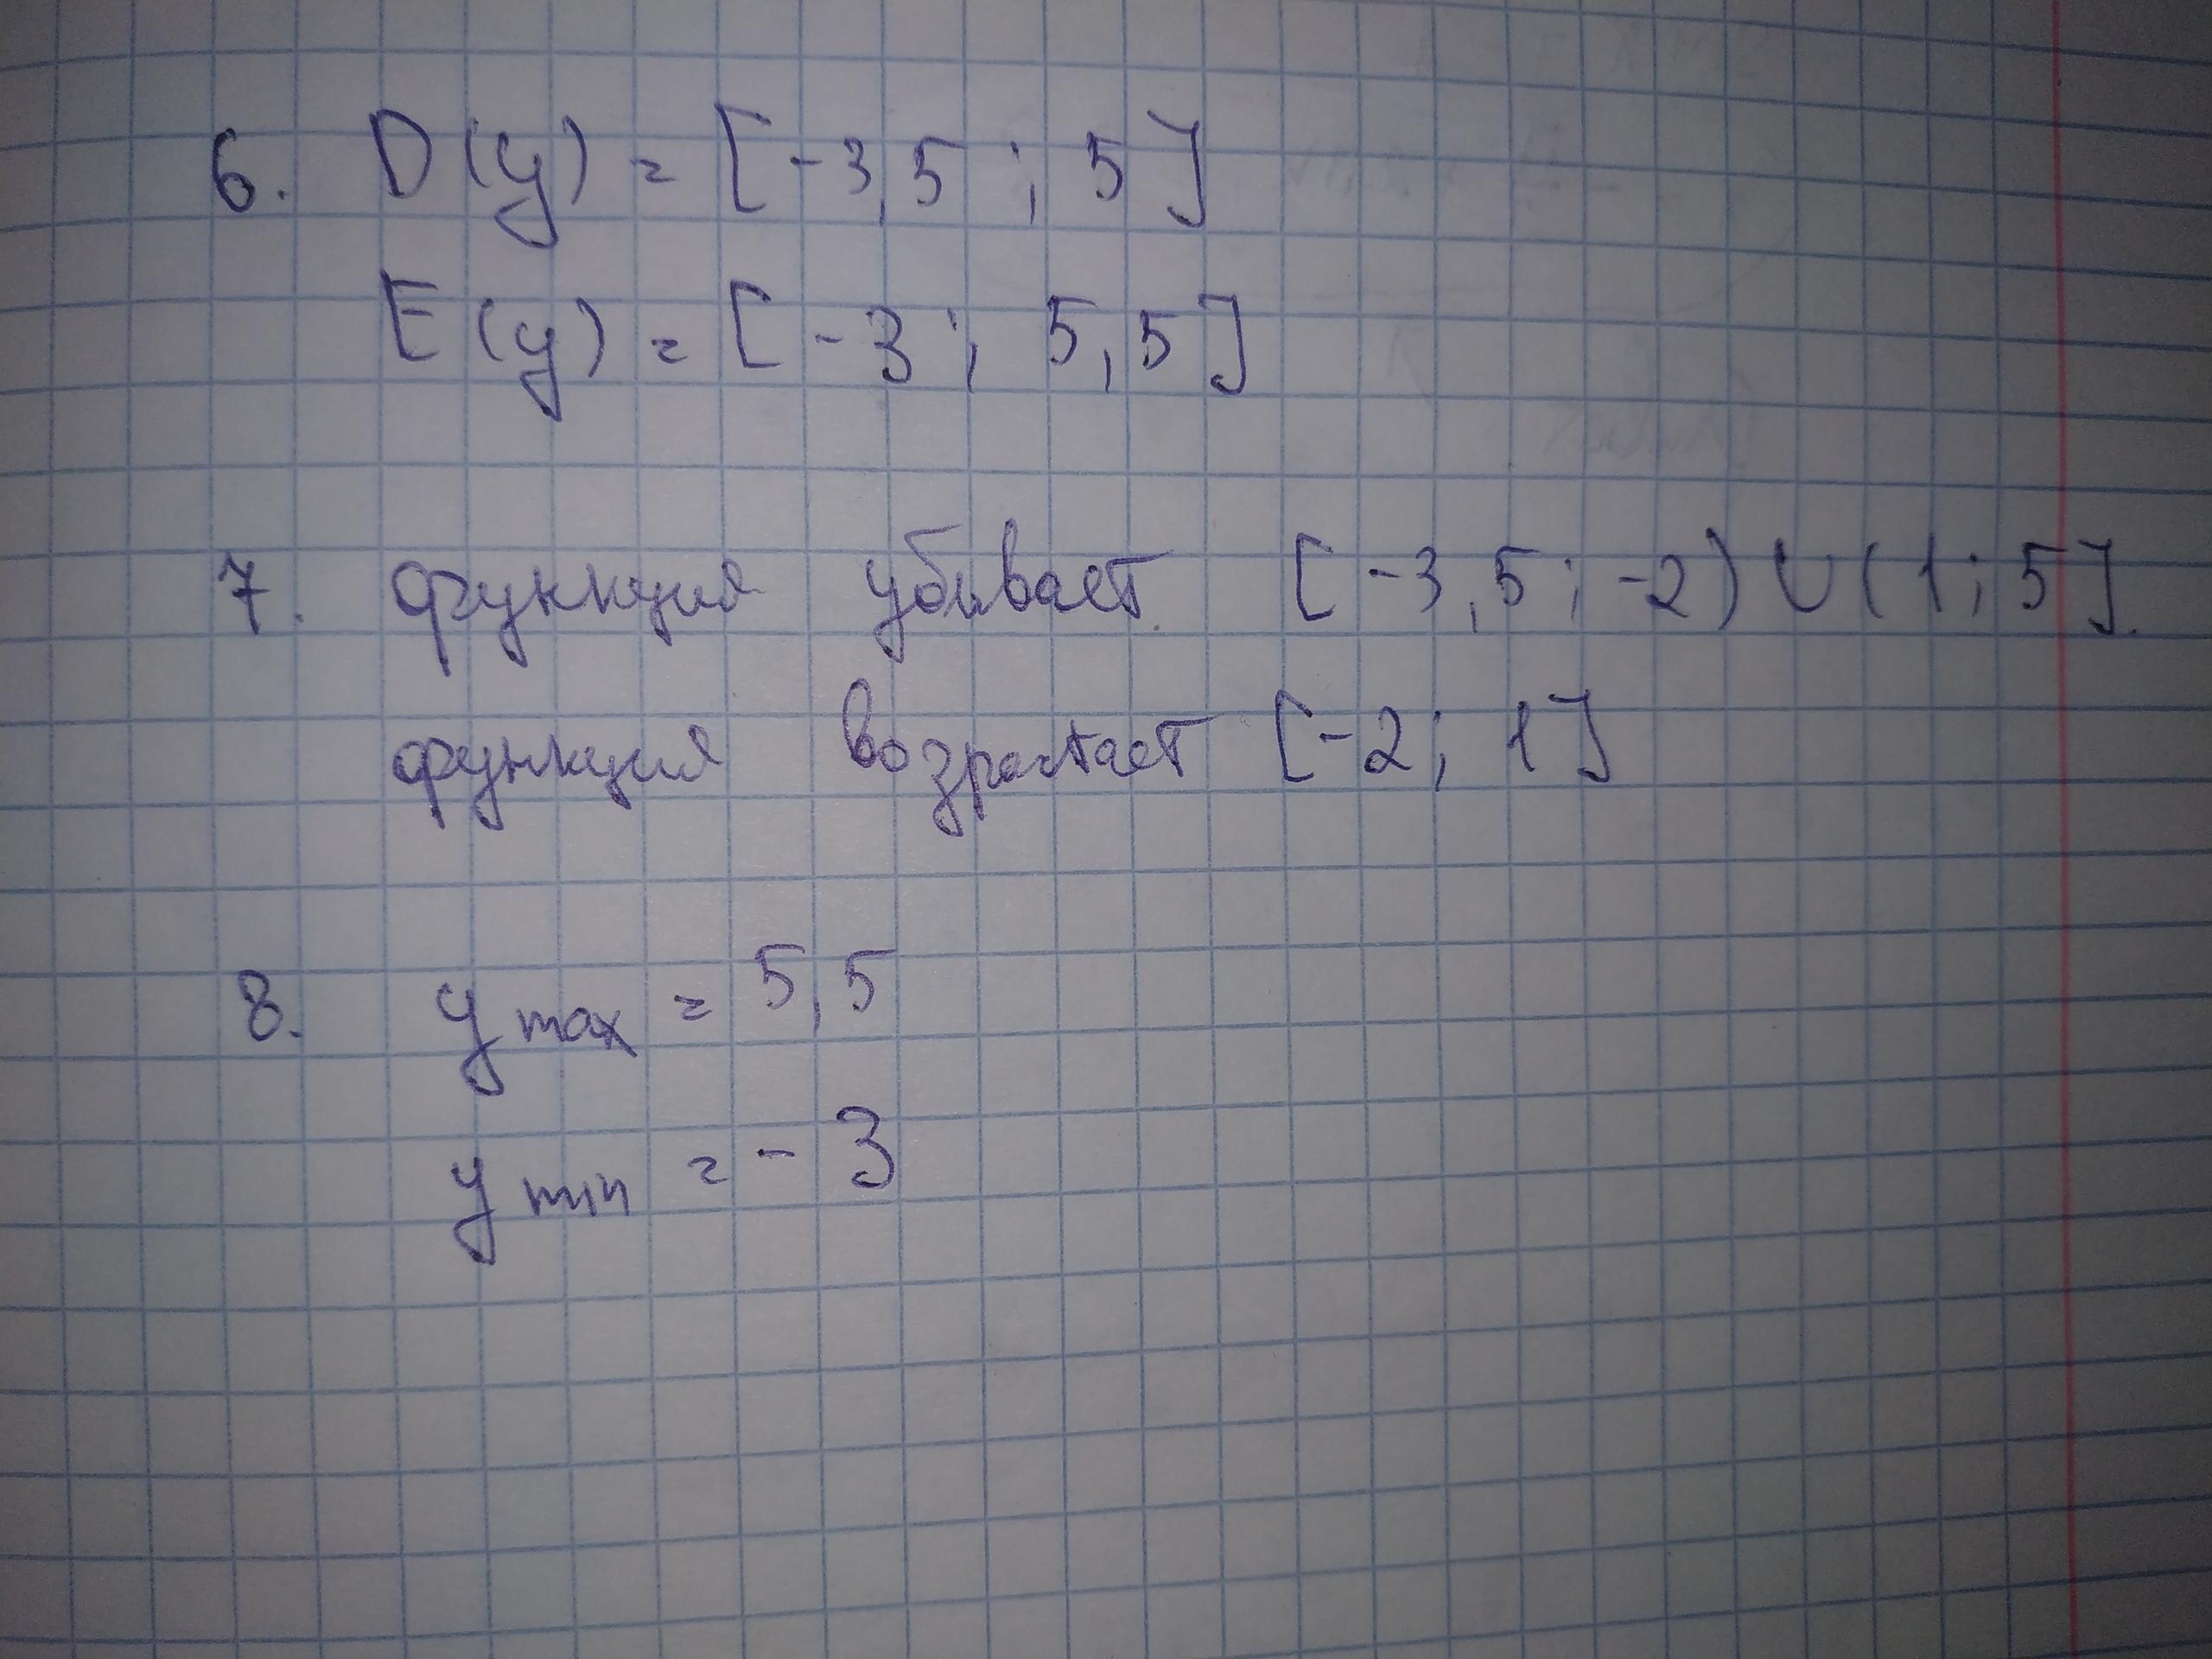 6. D(y) = [-3,5 ; 5]
E(y) = [-3 ; 5,5]
7. функция убывает [-3,5 ; -2) ∪ (1 ; 5].
функция возрастает [-2 ; 1]
8. y max = 5,5
y min = -3